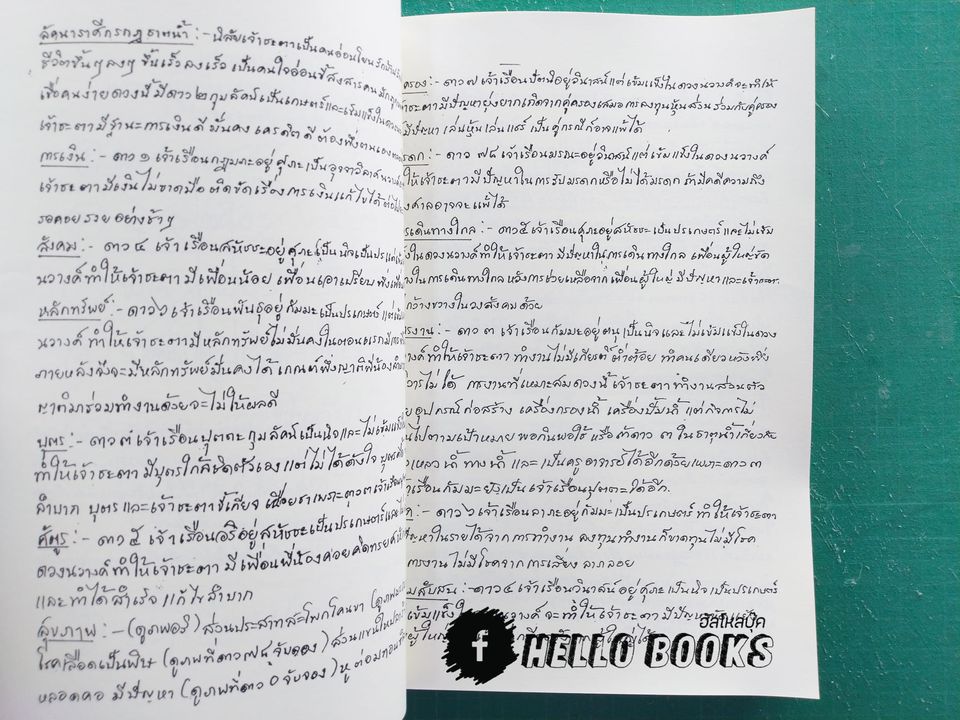 ลัคนาราศีกรกฎธาตุน้ำ:-นิสัยเจ้าชะตาเป็นคนอ่อนโยน
ชีวิตขึ้นๆลงๆ ขึ้นเร็วลงเร็ว เป็นคนใจอ่อนขี้สงสารคน
เชื่อคนง่ายดวงนี้มีดาว๒กุมลัคน์เป็นเกษตร์และเข้มแข็งใน
เจ้าชะตามีฐานะการเงินดีมั่นคง เครดิตดี ต้องพึ่งตนเอง
การเงิน:-ดาว ๑ เจ้าเรือนกฎุมภะอยู่ศุภะเป็นอุจจาวิลาศ
เจ้าชะตามีเงินไม่ขาดมือ ติดขัดเรื่องการเงินแก้ไขได้
รอคอยรวยอย่างช้าๆ
สังคม:-ดาว ๔ เจ้าเรือนสหัชชะอยู่ศุภะเป็นนิจเป็นประ
นวางค์ทำให้เจ้าชะตามีเพื่อนน้อย เพื่อนเอาเปรียบ
หลักทรัพย์:-ดาว๖เจ้าเรือนพันธุอยู่กัมมะเป็นประเกษตร์
นวางค์ ทำให้เจ้าชะตามีหลักทรัพย์ไม่มั่นคงในตอนแรก
ภายหลังจึงจะมีหลักทรัพย์มั่นคงได้ เกณฑ์พึ่งญาติพี่น้อง
ญาติมาร่วมทำงานด้วยจะไม่ให้ผลดี
บุตร:-ดาว๓เจ้าเรือนปุตตะกุมลัคน์เป็นนิจและไม่เข้มแข็ง
ทำให้เจ้าชะตามีบุตรใกล้ชิดตัวเองแต่ไม่ได้ดังใจ
ลำบาก บุตรและเจ้าชะตาขี้เกียจ เฉื่อยชาเพราะดาว๓
ศัตรู:-ดาว ๕ เจ้าเรือนอริอยู่สหัชชะเป็นประเกษตร์และ
ดวงนวางค์ทำให้เจ้าชะตามีเพื่อนพี่น้องคอยคิดทรยศ
และทำได้สำเร็จ แก้ไขลำบาก
สุขภาพ:-(ดูภพอริ)ส่วนประสาทสะโพกโคนขา
โรคเลือดเป็นพิษ(ดูภพที่ดาว๗๘จับจอง)ส่วนแขน
หลอดคอ มีปัญหา(ดูภพที่ดาว ๐ จับจอง)หู
ครอง:-ดาว ๗ เจ้าเรือนปัตนิอยู่วินาสน์แต่เข้มแข็งในดวงนวางค์จะทำให้
ชะตามีปัญหายุ่งยากเกิดจากคู่ครองเสมอการลงทุนหุ้นส่วนร่วมกับคู่ครอง
มีปัญหา เล่นหุ้นเล่นแชร์ เป็นคู่กรณีก็อาจแพ้ได้
รดก:-ดาว ๗๘ เจ้าเรือนมรณะอยู่วินาสน์แต่เข้มแข็งในดวงนวางค์
ให้เจ้าชะตามีปัญหาในการรับมรดกหรือไม่ได้มรดก ถ้ามีคดีความถึง
ศาลอาจจะแพ้ได้
รเดินทางไกล:-ดาว๕เจ้าเรือนศุภะอยู่สหัชชะเป็นประเกษตร์และไม่เข้ม
ในดวงนวางค์ทำให้เจ้าชะตามีปัญหาในการเดินทางไกล เพื่อนผู้ใหญ่ขัด
ในการเดินทางไกล หวังการช่วยเหลือจากเพื่อนผู้ใหญ่มีปัญหาและเจ้าชะตา
กว้างขวางในวงสังคมด้วย
รงาน:-ดาว ๓ เจ้าเรือนกัมมะอยู่ตนุเป็นนิจและไม่เข้มแข็งในดวง
ค์ทำให้เจ้าชะตาทำงานไม่มีเกียรติ์ต่ำต้อย ทำคนเดียวหวังพึ่ง
ไม่ได้ การงานที่เหมาะสมดวงนี้เจ้าชะตาทำงานส่วนตัว
อุปกรณ์ก่อสร้าง เครื่องกรองน้ำ เครื่องปั๊มน้ำ แต่กิจการไม่
ไปตามเป้าหมาย พอกินพอใช้ หรือค้าดาว ๓ ในธาตุน้ำเกี่ยวกับ
เหลว น้ำ ทางน้ำ และเป็นครูอาจารย์ได้อีกด้วยเพราะดาว๓
เรือนกัมมะยังเป็นเจ้าเรือนปุตตะได้อีก.
:-ดาว๖เจ้าเรือนลาภะอยู่กัมมะเป็นประเกษตร์ ทำให้เจ้าชะตา
หาในรายได้จากการทำงาน ลงทุนทำงานก็ขาดทุนไม่มีโชค
การงาน ไม่มีโชคจากการเสี่ยง ลาภลอย
สับสน:-ดาว๔เจ้าเรือนวินาสน์อยู่ศุภะเป็นนิจเป็นประเกษตร์
เข้มแข็งใน นวางค์ จะทำให้เจ้าชะตามีปัญหา
ฮัลโหลบุ๊ค
f HELLO BOOKS